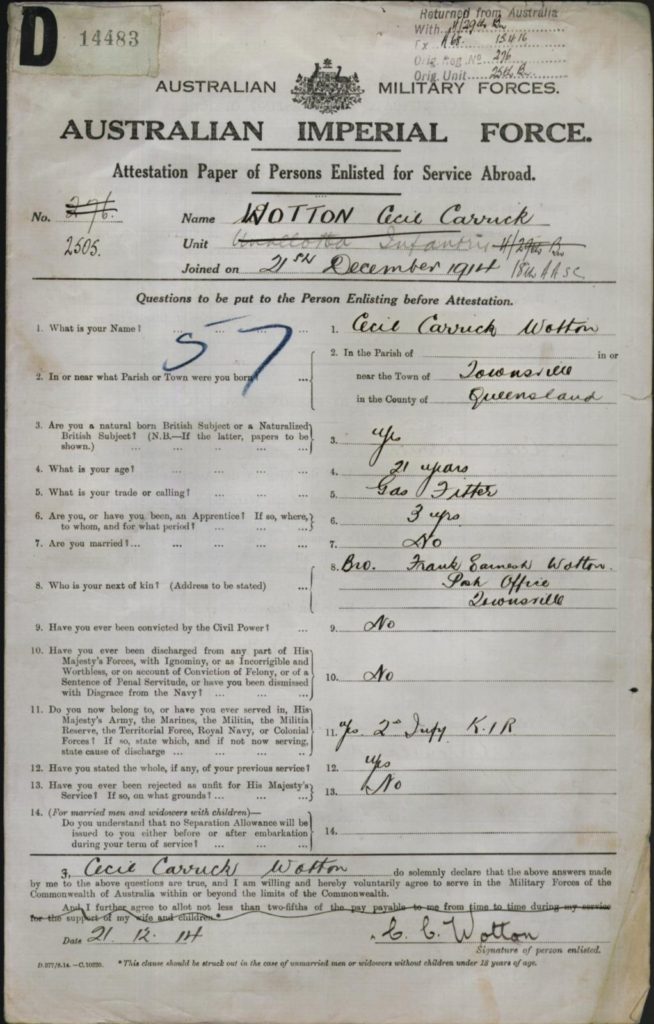 D 14483
Returned from Australia
With 4/29th Bn
Ex A68 15.4.16
Orig. Reg. No 276
Orig. Unit. 25th Bn
AUSTRALIAN MILITARY FORCES.
AUSTRALIAN IMPERIAL FORCE.
Attestation Paper of Persons Enlisted for Service Abroad.
No. 276. Name WOTTON Cecil Carrick
2505. Unit Unallotted Infantry 4/29th Bn
Joined on 21st December 1914 18th AASC
Questions to be put to the Person Enlisting before Attestation.
57
1. What is your Name? ... ... ... ... 1. Cecil Carrick Wotton
2. In or near what Parish or Town were you born? ... 2. In the Parish of in or
near the Town of Townsville
in the County of Queensland
3. Are you a natural born British Subject or a Naturalized
British Subject? (N.B.—If the latter, papers to be
shown.) ... ... ... ... 3. yes
4. What is your age? ... ... ... ... 4. 21 years
5. What is your trade or calling? ... ... ... 5. Gas Fitter
6. Are you, or have you been, an Apprentice? If so, where,
to whom, and for what period? ... ... ... 6. 3 yrs
7. Are you married? ... ... ... ... ... 7. No
8. Who is your next of kin? (Address to be stated) ... 8. Bro. Frank Earnest Wotton.
Post Office
Townsville
9. Have you ever been convicted by the Civil Power? ... 9. No
10. Have you ever been discharged from any part of His
Majesty's Forces, with Ignominy, or as Incorrigible and
Worthless, or on account of Conviction of Felony, or of a
Sentence of Penal Servitude, or have you been dismissed
with Disgrace from the Navy? ... ... ... 10. No
11. Do you now belong to, or have you ever served in, His
Majesty's Army, the Marines, the Militia, the Militia
Reserve, the Territorial Force, Royal Navy, or Colonial
Forces? If so, state which, and if not now serving,
state cause of discharge ... ... ... 11. yes. 2nd Infy K.I.R
12. Have you stated the whole, if any, of your previous service? 12. yes
13. Have you ever been rejected as unfit for His Majesty's
Service? If so, on what grounds? ... ... ... 13. No
14. (For married men and widowers with children)—
Do you understand that no Separation Allowance will be
issued to you either before or after embarkation
during your term of service? ... ... ... 14.
I, Cecil Carrick Wotton do solemnly declare that the above answers made
by me to the above questions are true, and I am willing and hereby voluntarily agree to serve in the Military Forces of the
Commonwealth of Australia within or beyond the limits of the Commonwealth.
And I further agree to allot not less than two-fifths of the pay payable to me from time to time during my service
for the support of my wife and children.*
Date 21. 12. 14 C. C. Wotton
Signature of person enlisted.
D.577/8.14.—C.10620. *This clause should be struck out in the case of unmarried men or widowers without children under 18 years of age.